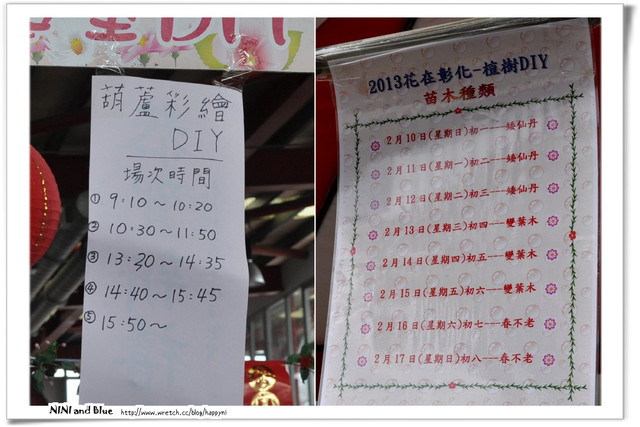 DIY
葫蘆彩繪
DIY
場次時間
① 9:10～10:20
② 10:30～11:50
③ 13:30～14:35
④ 14:40～15:45
⑤ 15:50～
2013花在彰化-植樹DIY
苗木種類
2月10日(星期日)初一---矮仙丹
2月11日(星期一)初二---矮仙丹
2月12日(星期二)初三---矮仙丹
2月13日(星期三)初四---變葉木
2月14日(星期四)初五---變葉木
2月15日(星期五)初六---變葉木
2月16日(星期六)初七---春不老
2月17日(星期日)初八---春不老
NINI and Blue http://www.wretch.cc/blog/happyni